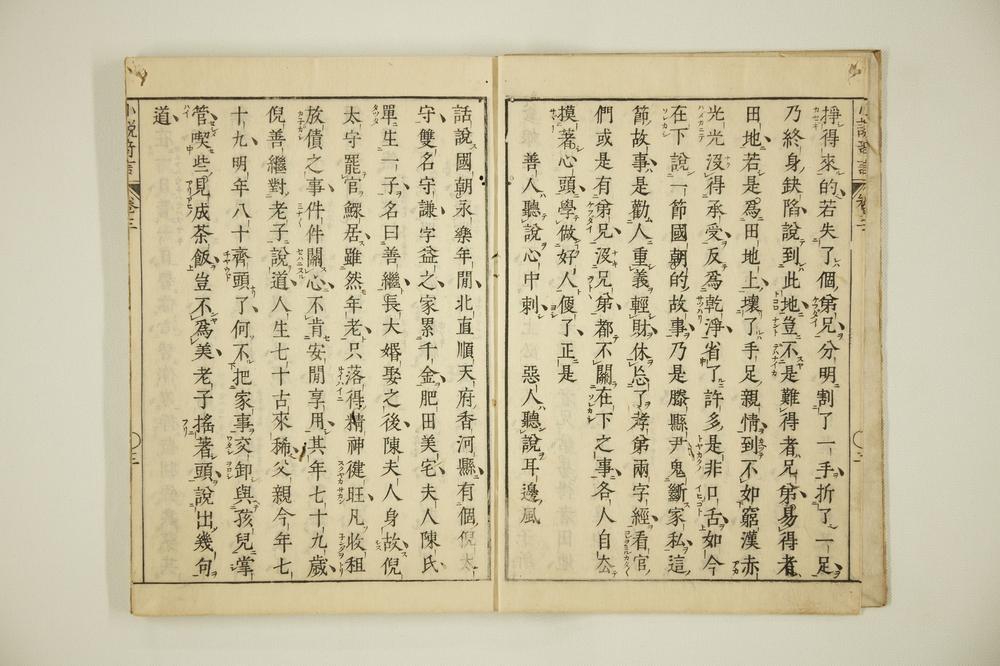 掙得來的若失了個弟兄分明割了一手折了一足
乃終身缺陷說到此地豈不是難得者兄弟易得者
田地若是爲田地上壞了手足親情到不如窮漢赤
光光沒得承受反爲乾淨省了許多是非口舌如今
在下說一節國朝的故事乃是滕縣尹鬼斷家私這
節故事是勸人重義輕財休忘了孝弟兩字經看官
們或是有弟兄沒兄弟都不關在下之事各人自去
摸著心頭學做好人便了正是
善人聽說心中刺　惡人聽說耳邊風
話說國朝永樂年間北直順天府香河縣有個倪太
守雙名守謙字益之家累千金肥田美宅夫人陳氏
單生一子名曰善繼長大婚娶之後陳夫人身故倪
太守罷官鰥居雖然年老只落得精神健旺凡收租
放債之事件件關心不肯安閒享用其年七十九歲
倪善繼對老子說道人生七十古來稀父親今年七
十九明年八十齊頭了何不把家事交卸與孩兒掌
管喫些見成茶飯豈不爲美老子搖著頭說出幾句
道